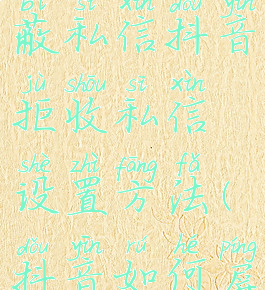 bì sī xìn dǒu yīn
蔽私信抖音
jù shōu sī xìn
拒收私信
shè zhì fāng fǎ
设置方法(
dǒu yīn rú hé píng
抖音如何屏